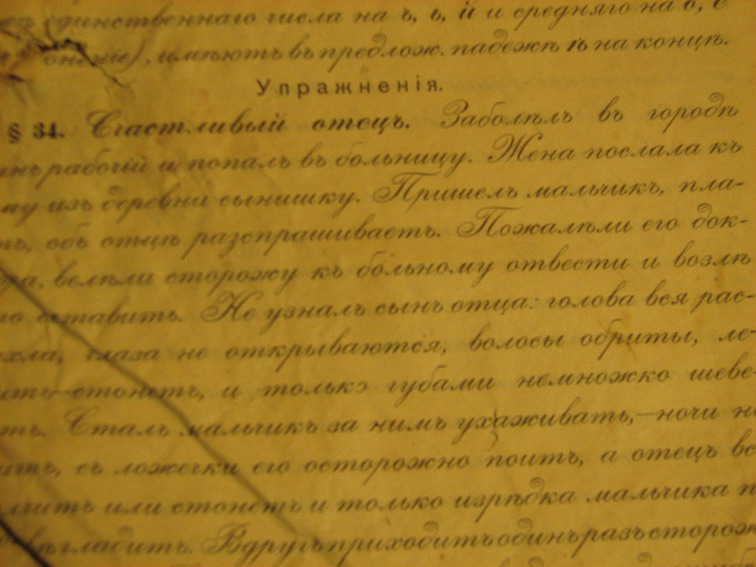 единственнаго числа на ъ, ь, й и средняго на о, е
имѣютъ въ предлож. падежѣ ѣ на концѣ.
Упражненія.
§ 34. Счастливый отецъ. Заболѣлъ въ городѣ
инъ рабочій и попалъ въ больницу. Жена послала къ
му изъ деревни сынишку. Пришелъ мальчикъ, пла-
тъ, объ отцѣ разспрашиваетъ. Пожалѣли его док-
ра, велѣли сторожу къ больному отвести и возлѣ
го оставить. Не узналъ сынъ отца: голова вся рас-
хла, глаза не открываются, волосы обриты, ле-
итъ—стонетъ, и только губами немножко шеве-
тъ. Сталъ мальчикъ за нимъ ухаживать,—ночи н
итъ, съ ложечки его осторожно поитъ, а отецъ вс
лчитъ или стонетъ и только изрѣдка мальчика п
гладитъ. Вдругъ приходитъ одинъ разъ сторож